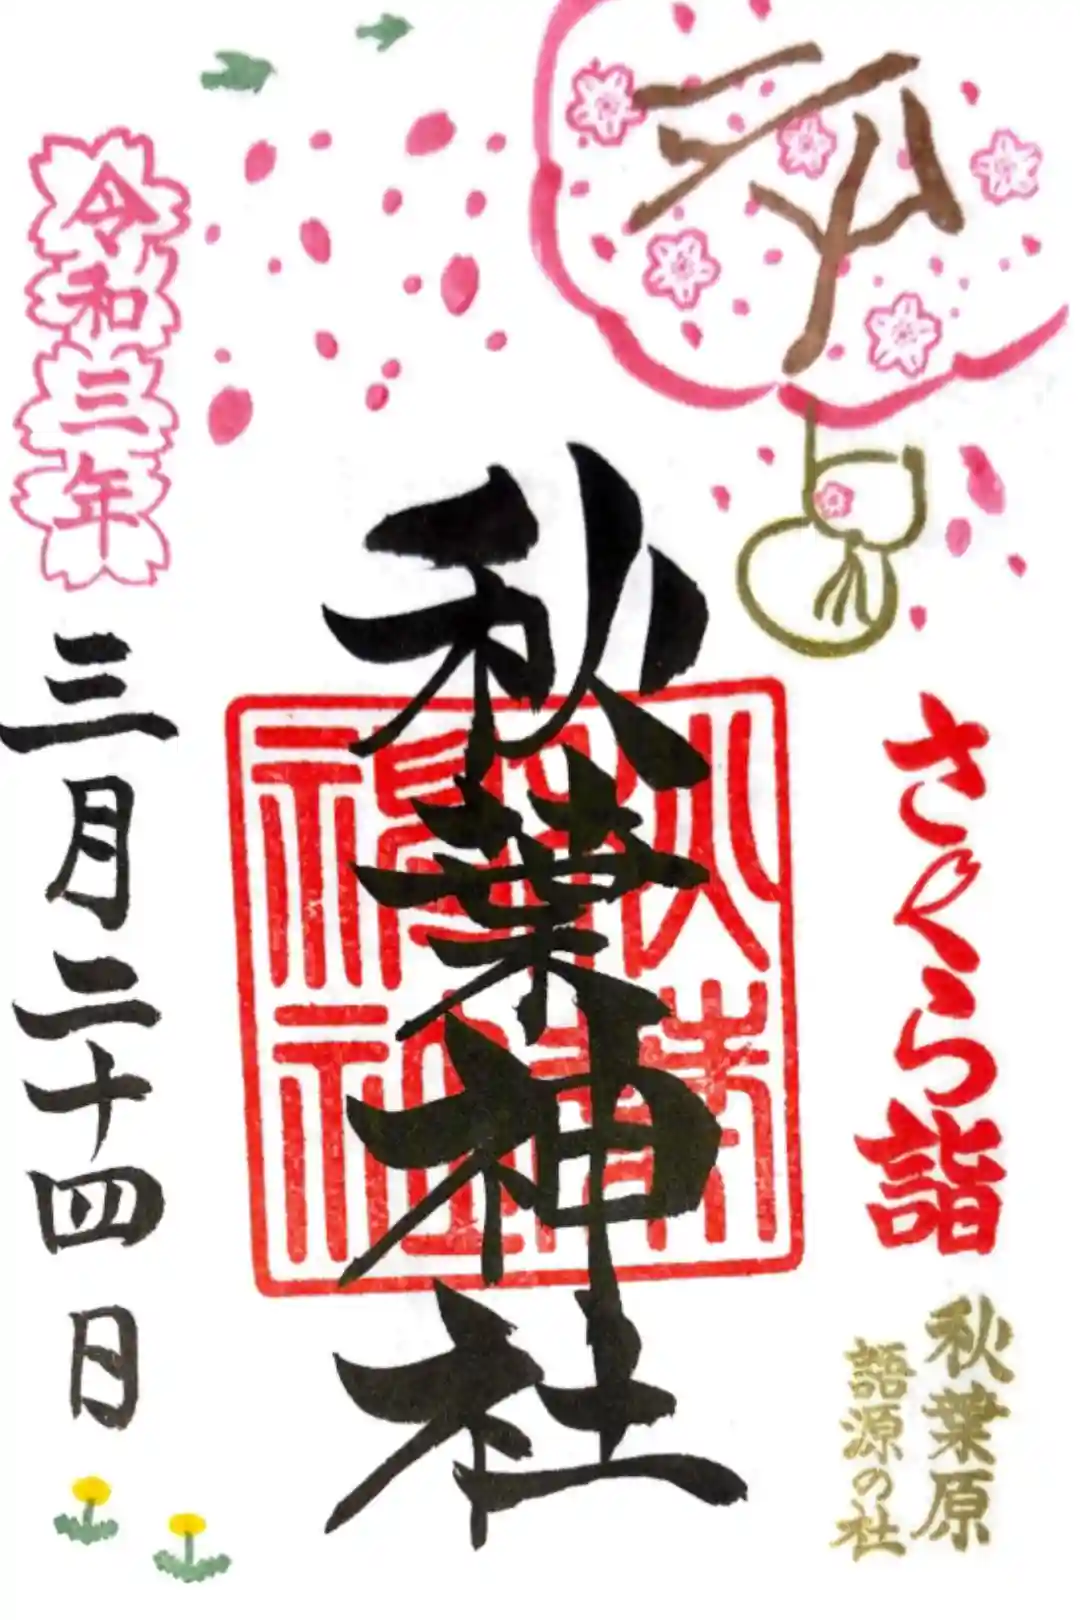 さくら詣
秋葉原
語源の社
秋葉神社
令和三年三月二十四日